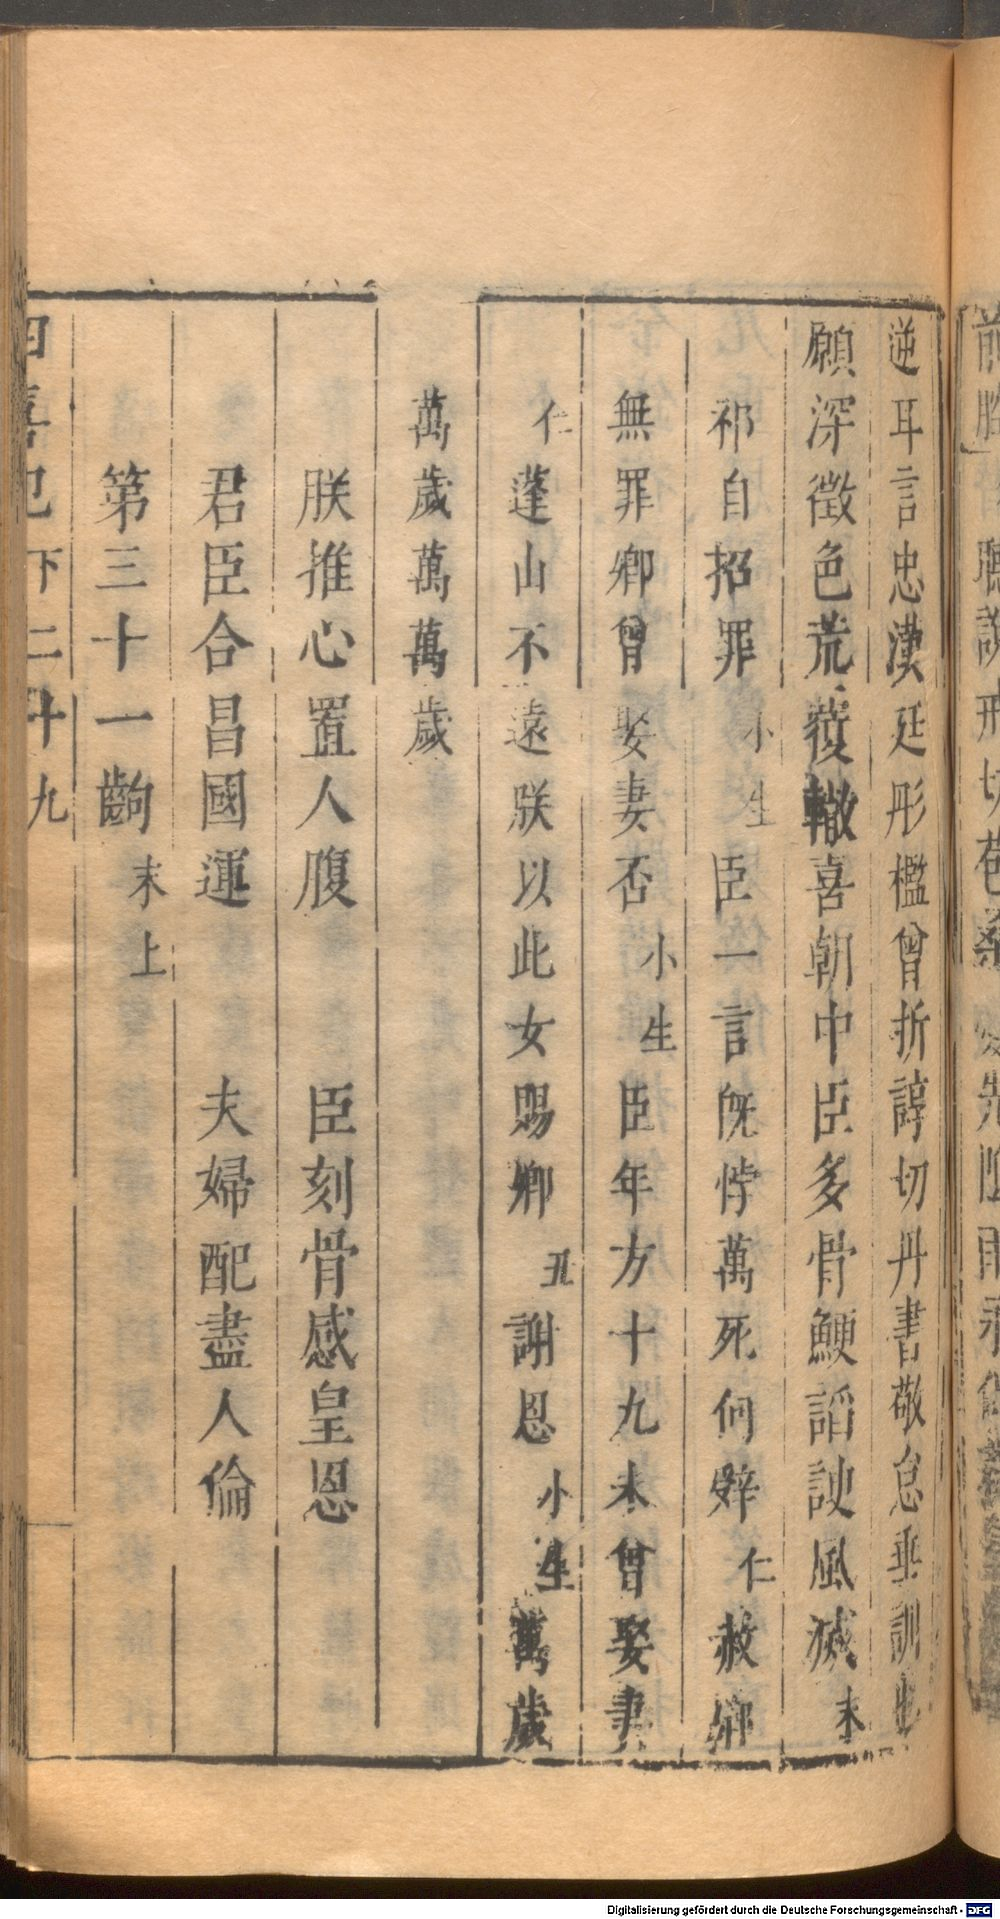 逆耳言忠漢廷彤檻曾折諄切丹書敬怠垂訓也
願深徵色荒覆轍喜朝中臣多骨鯁諂諛風滅末
祁自招罪小生臣一言既悖萬死何辝仁赦卿
無罪卿曾娶妻否小生臣年方十九未曾娶妻
仁蓬山不遠朕以此女賜卿丑謝恩小生萬歲
萬歲萬萬歲
朕推心置人腹 臣刻骨感皇恩
君臣合昌國運 夫婦配盡人倫
第三十一齣末上
四喜記下二十九
Digitalisierung gefördert durch die Deutsche Forschungsgemeinschaft - DFG